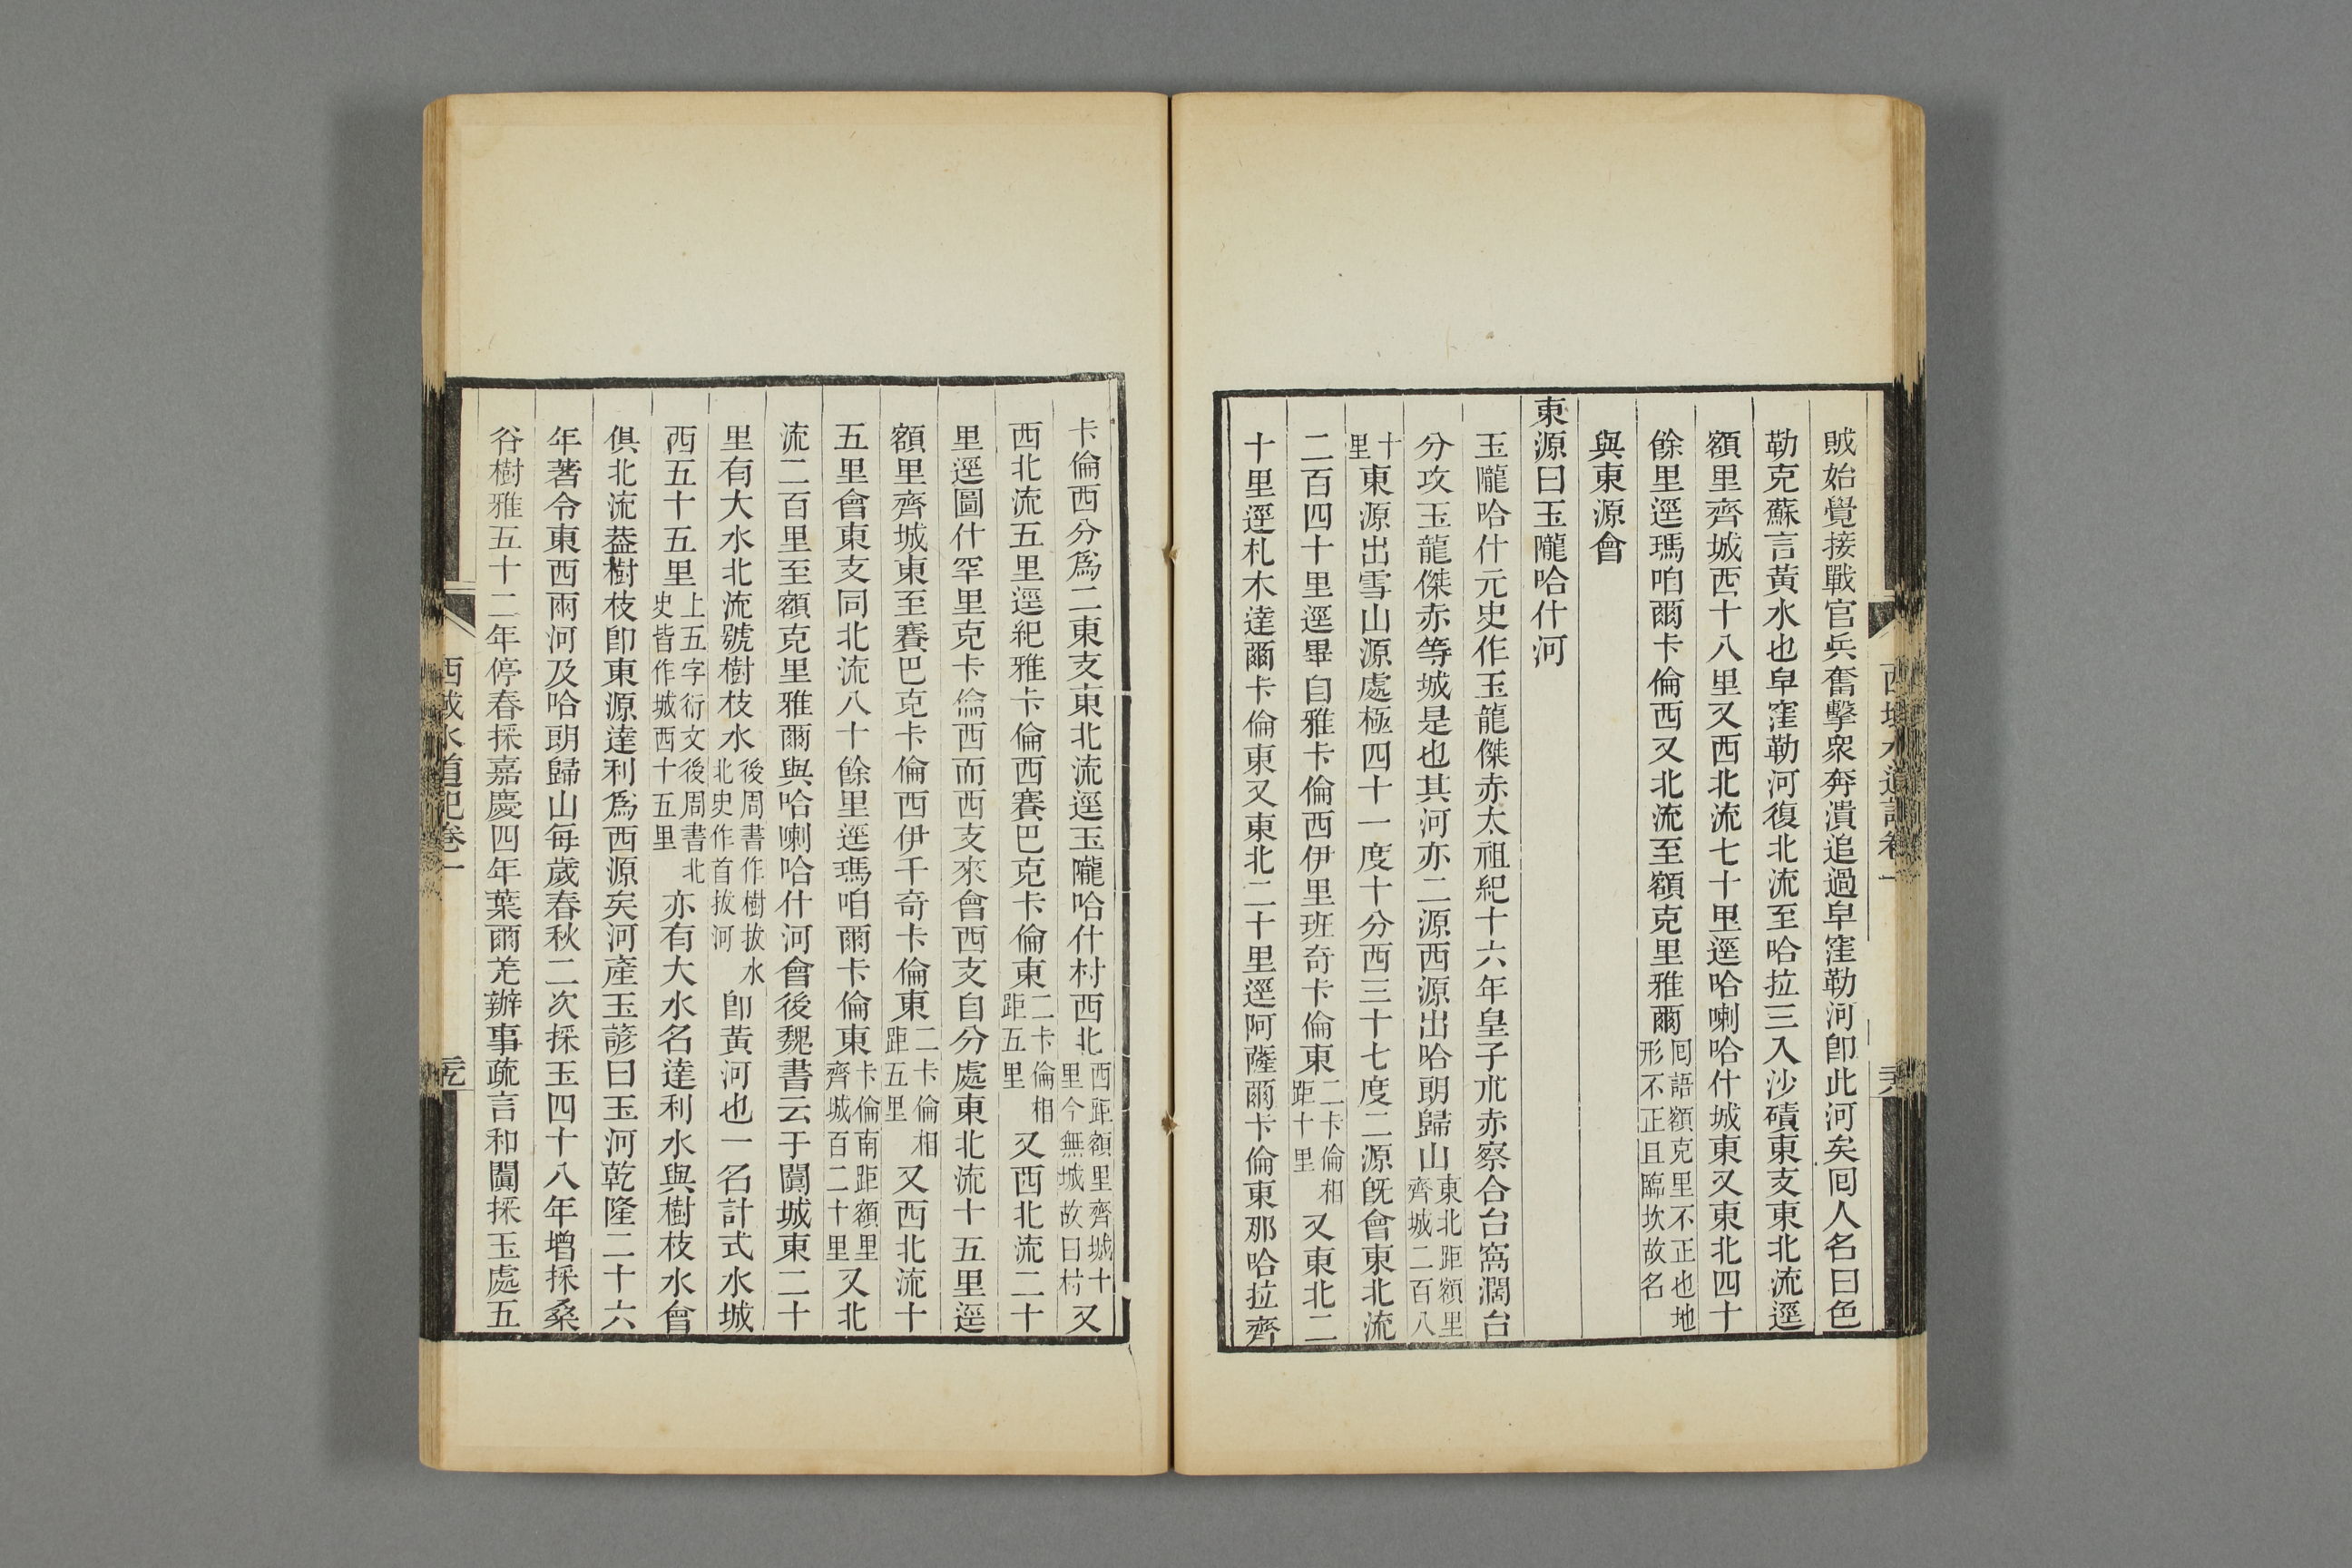 賊始覺接戰官兵奮擊衆奔潰追過皁窪勒河卽此河矣囘人名曰色
勒克蘇言黃水也皁窪勒河復北流至哈拉三入沙磧東支東北流逕
額里齊城西十八里又西北流七十里逕哈喇哈什城東又東北四十
餘里逕瑪咱爾卡倫西又北流至額克里雅爾囘語額克里不正也地形不正且臨坎故名
與東源會
東源曰玉隴哈什河
玉隴哈什元史作玉龍傑赤太祖紀十六年皇子朮赤察合台窩濶台
分攻玉龍傑赤等城是也其河亦二源西源出哈朗歸山東北距額里齊城二百八
十里東源出雪山源處極四十一度十分西三十七度二源旣會東北流
二百四十里逕畢自雅卡倫西伊里班奇卡倫東二卡倫相距十里又東北二
十里逕札木達爾卡倫東又東北二十里逕阿薩爾卡倫東那哈拉齊
卡倫西分爲二東支東北流逕玉隴哈什村西北西距額里齊城十里今無城故曰村又
西北流五里逕紀雅卡倫西賽巴克卡倫東二卡倫相距五里又西北流二十
里逕圖什罕里克卡倫西而西支來會西支自分處東北流十五里逕
額里齊城東至賽巴克卡倫西伊千奇卡倫東二卡倫相距五里又西北流十
五里會東支同北流八十餘里逕瑪咱爾卡倫東卡倫南距額里齊城百二十里又北
流二百里至額克里雅爾與哈喇哈什河會後魏書云于闐城東二十
里有大水北流號樹枝水後周書作樹拔水北史作首拔河卽黃河也一名計式水城
西五十五里上五字衍文後周書北史皆作城西十五里亦有大水名達利水與樹枝水會
俱北流葢樹枝卽東源達利爲西源矣河產玉諺曰玉河乾隆二十六
年著令東西兩河及哈朗歸山每歲春秋二次採玉四十八年增採桑
谷樹雅五十二年停春採嘉慶四年葉爾羌辦事疏言和闐採玉處五
西域水道記卷一